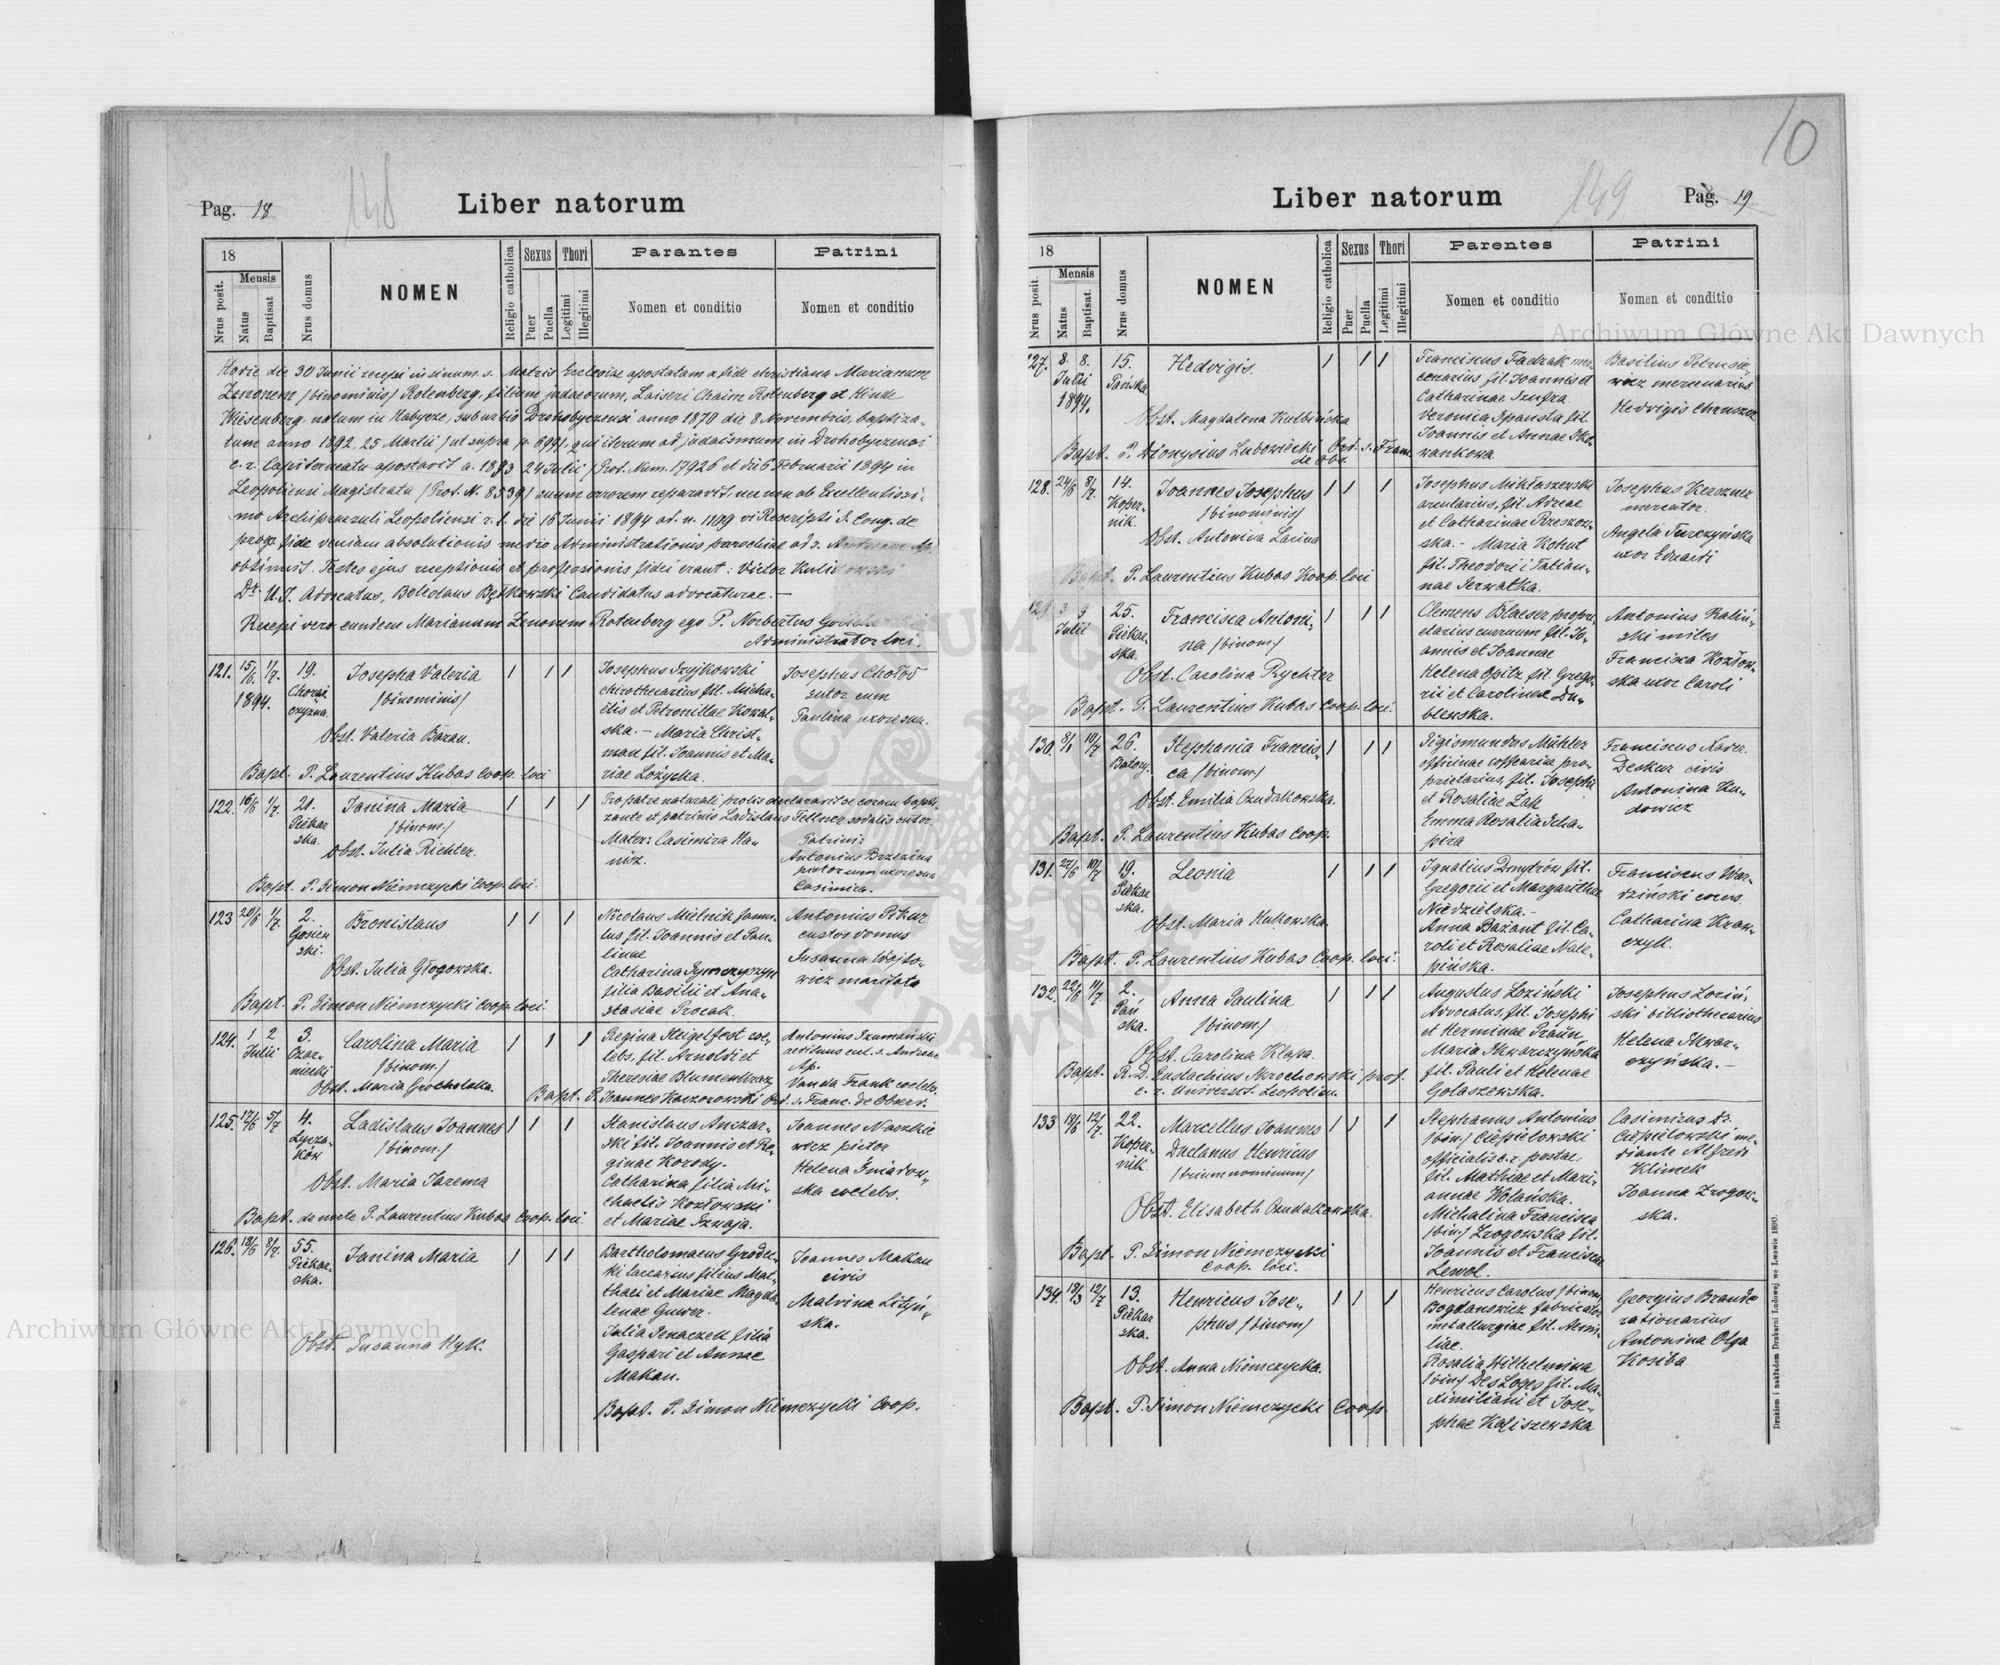 10
Pag. 18
148
Liber natorum
18
Nrus posit.
Mensis
Natus
Baptisat
Nrus domus
NOMEN
Religio catholica
Sexus
Puer
Puella
Thori
Legitimi
Illegitimi
Parantes
Nomen et conditio
Patrini
Nomen et conditio
Hodie die 30 Junii recepi in sinum s. Matris Ecclesiae apostatam a fide christiana Marianum
Zenonem /binominis/ Rotenberg, filium judaeorum, Laiseri Chaim Rotenberg et Hinde
Wiesenberg, natum in Zabycze, suburbio Drohobyczensi anno 1870 die 8 Novembris, baptiza-
tum anno 1892. 25 Martii /ut supra p. 699/, qui iterum ad judaismum in Drohobyczensi
c. r. Capitaneatu apostavit a. 1893 24 Julii /Prot. Num. 17926 et die 6 Februarii 1894 in
Leopoliensi Magistratu /Prot. N. 8539/ suum errorem reparavit, nec non ab Excellentissi-
mo Archipraesuli Leopoliensi r. l. die 16 Junii 1894 ad. n. 1109 vi Rescripti S. Cong. de
prop. fide veniam absolutionis medio Administrationis parochiae ad s.
obtinuit. Testes ejus receptionis et professionis fidei erant: Victor
Dr. U. J. Advocatus, Boleslaus Bętkowski Candidatus advocaturae. —
Recepi vero eundem Marianum Zenonem Rotenberg ego P. Norbertus
Administrator loci.
121. 15/6. 1/7. 1894. 19. Chorąż czyzna. Josepha Valeria /binominis/ 1 1 1
Obst. Valeria Baran.
Bapt. P. Laurentius Kubas Coop. loci
Josephus Szyjkowski
chirothecarius fil. Micha-
elis et Petronillae Kowal-
ska. — Maria Christ-
man fil. Joannis et Ma-
riae Łożycka.
Josephus Chołod
sutor cum
Paulina uxore sua.
122. 16/6 1/7. 21. Piekar ska. Janina Maria /binom./ 1 1 1
Obst. Julia Richter.
Bapt. P. Simon Niemczycki Coop. loci.
Pro patre naturali prolis declaravit se coram bapti-
zante et patrinis Ladislaus Fellner sodalis sutor.
Mater: Casimira Ha-
nisz.
Patrini:
Antonius Brzezina
pistor cum uxore sua
Casimira.
123 20/6 1/7. 2. Gosiew ski. Bronislaus 1 1 1
Obst. Julia Głogowska.
Bapt. P. Simon Niemczycki Coop. loci.
Nicolaus Mielnik famu-
lus fil. Joannis et Pau-
linae
Catharina
filia Basilii et Ana-
stasiae Trocak.
Antonius Pikur
custos domus
Susanna Wójto-
wicz maritata
124. 1 2 Julii 3. Czar- niecki Carolina Maria /binom./ 1 1 1
Obst. Maria Grocholska.
Bapt. P. Joannes Kaczorowski Ord. s. Franc. de Observ.
Regina Steigelfest coe-
lebs, fil. Arnoldi et
Theresiae Blumenkranz
Antonius Szumański
aedituus eccl. s. Andreae
Ap.
Vanda Frank coelebs.
125. 17/6 5/7 4. Łycza- ków Ladislaus Joannes /binom./ 1 1 1
Obst. Maria Jarema
Bapt. de mete P. Laurentius Kubas Coop. loci.
Stanislaus Anczar-
ski fil. Joannis et Re-
ginae Korody.
Catharina filia Mi-
chaelis Kozłowski
et Mariae Sznaja.
Joannes Naszkie
wicz pictor
Helena Śniadow-
ska coelebs.
126. 18/6 8/7. 55. Piekar- ska. Janina Maria 1 1 1
Obst. Susanna Kyk.
Bartholomaeus Grodec-
ki laccarius filius Mat-
thaei et Mariae Magda-
lenae Guwer.
Julia Senaczek filia
Gaspari et Annae
Makan.
Joannes Makan
civis
Malvina Lityń-
ska.
Bapt. P. Simon Niemczycki Coop.
Liber natorum
149
Pag. 19
18
Nrus posit
Mensis
Natus
Baptisat.
Nrus domus
NOMEN
Religio catholica
Sexus
Puer
Puella
Thori
Legitimi
Illegitimi
Parentes
Nomen et conditio
Patrini
Nomen et conditio
127. 8. 8. Julii 1894. 15. Pańska. Hedvigis. 1 1 1
Obst. Magdalena Kulbińska
Bapt. P. Dionysius Lubowiecki Ord. s. Franc. de Obs.
Franciscus Fadrak mer-
cenarius fil. Joannis et
Catharinae Szufra.
Veronica Spausta fil.
Joannis et Annae Sko-
wankowa.
Basilius Petrusie-
wicz mercenarius
Hedvigis Chruszcz.
128. 24/6 8/7. 14. Koper- nik. Joannes Josephus /binominis/ 1 1 1
Obst. Antonina Lacina
Bapt. P. Laurentius Kubas Koop. loci
Josephus Mikłaszewski
arcularius, fil. Adreae
et Catharinae Brzezow-
ska. — Maria Kohut
fil. Theodori i Tatian-
nae Serwatka.
Josephus Kerszner
mercator.
Angela Turczyńska
uxor Eduardi
129. 3 9 Julii 25. Piekar- ska. Francisca Antoni- na /binom/ 1 1 1
Obst. Carolina Rychter
Bapt. P. Laurentius Kubas Coop. loci.
Clemens Blaeser propri-
etarius curruum fil. Jo-
annis et Joannae
Helena Opitz fil. Grego-
rii et Carolinae Du-
blewska.
Antonius Raliń-
ski miles
Francisca Kozłow-
ska uxor Caroli
130. 8/1 10/7 26. Batory. Stephania Francis- ca /binom./ 1 1 1
Obst. Emilia Czudakowska.
Bapt. P. Laurentius Kubas Coop.
Sigismundus Mühler
officinae coffearia pro-
prietarius, fil. Josephi
et Rosaliae Żak
Emma Rosalia Scha-
pira
Franciscus Xaver.
Deskur civis
Antonina Hu-
dowicz
131. 27/6 10/7 19. Piekar ska. Leonia 1 1 1
Obst. Maria Hukowska.
Bapt. P. Laurentius Kubas Coop. loci.
Ignatius Dmytrów fil.
Gregorii et Margarithae
Niedzielska. —
Anna Bażant fil. Ca-
roli et Rosaliae Nale-
pińska.
Franciscus War-
dziński
Catharina Kraw-
czyk.
132. 22/6 11/7 2. Pań ska. Anna Paulina /binom/ 1 1 1
Obst. Carolina Klapa.
Bapt. R. D. Eustachius Skrochowski prof.
c. r. Universit. Leopolien.
Augustus Łoziński
Advocatus, fil. Josephi
et Herminae Praun,
Maria Skwarczyńska
fil. Pauli et Helenae
Gołaszewska.
Josephus Łoziń-
ski bibliothecarius
Helena Skwar-
czyńska. —
133 18/6 12/7. 22. Koper- nik. Marcellus Joannes Daclanus Henricus /trium nominum/ 1 1 1
Obst. Elisabeth Czudakowska.
Bapt. P. Simon Niemczycki
Coop. loci.
Stephanus Antonius
/bin./ Ciepielowski
officialis c. r. postae,
fil. Matthiae et Mari-
annae Wolańska.
Michalina Francisca
/bin./ Zrogowska fil.
Joannis et Franciscae
Lewol.
Casimirus Dr.
Ciepielowski me-
diante Alfredi
Klimek
Joanna Zrogow-
ska.
134. 18/3 12/7 13. Piekar ska. Henricus Jose- phus /binom/ 1 1 1
Obst. Anna Niemczycka.
Bapt. P. Simon Niemczycki Coop.
Henricus Carolus /binom/
Bogdanowicz fabricator
metallurgiae fil. Aemi-
liae.
Rosalia Wilhelmina
/bin/ Des Loges fil. Ma-
ximiliani et Jose-
phae Kaliszewska
Georgius Brande
rationarius
Antonina Olga
Kosiba
Drukiem i nakładem Drukarni Ludowej we Lwowie 1890.
Archiwum Główne Akt Dawnych
Archiwum Główne Akt Dawnych
ARCHIWUM GŁÓWNE AKT DAWNYCH